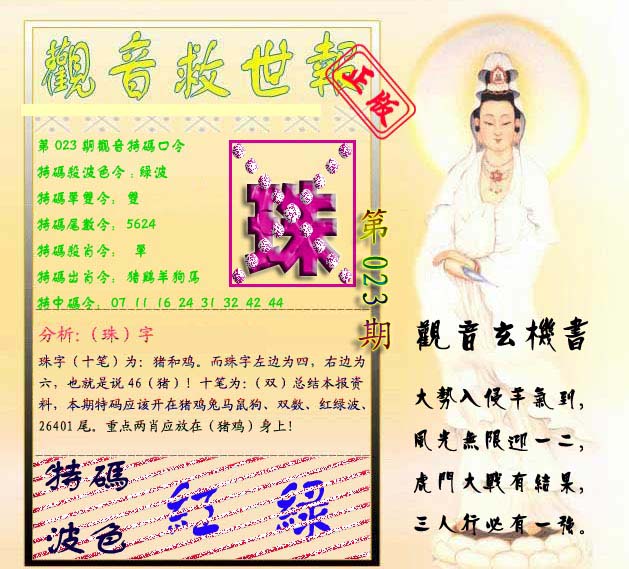 觀音救世報
正版
第023期觀音特碼口令
特碼殺波色令:綠波
特碼單雙令: 雙
特碼尾數令: 5624
特碼殺肖令: 單
特碼出肖令: 猪鷄羊狗馬
特中碼令: 07 11 16 24 31 32 42 44
珠
第023期
分析:(珠)字
珠字(十笔)为:猪和鸡。而珠字左边为四,右边为
六,也就是说46(猪)!十笔为:(双)总结本报资
料,本期特码应该开在猪鸡兔马鼠狗、双数、红绿波、
26401尾。重点两肖应放在(猪鸡)身上!
特碼
波色
紅 綠
觀音玄機書
大勢入侵羊氣到,
風光無限迎一二,
虎門大戰有結果,
三人行必有一強。